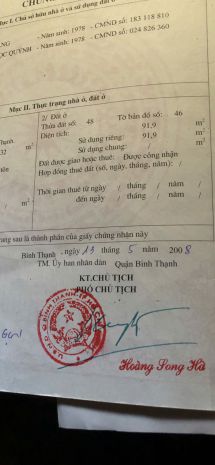 CHỨNG
ục I. Chủ sở hữu nhà ở và sử dụng đất
NG - Năm sinh: 1978 - CMND số: 183 118 810
ỌC QUỲNH - Năm sinh: 1978 - CMND số: 024 826 360
Mục II. Thực trạng nhà ở, đất ở
2/ Đất ở
Thửa đất số: 48 Tờ bản đồ số: 46
Diện tích: 91,9 m²
Sử dụng riêng: 91,9 m²
Sử dụng chung: / m²
Đất được giao hoặc thuê: Được công nhận
Hợp đồng thuê đất (số, ngày, tháng, năm): /
Thời gian thuê từ ngày / tháng / năm /
đến ngày / tháng / năm /
rang sau là thành phần của giấy chứng nhận này
Bình Thạnh, ngày 13 tháng 5 năm 2008
TM. Ủy ban nhân dân Quận Bình Thạnh
KT.CHỦ TỊCH
PHÓ CHỦ TỊCH
Hoàng Song Hà